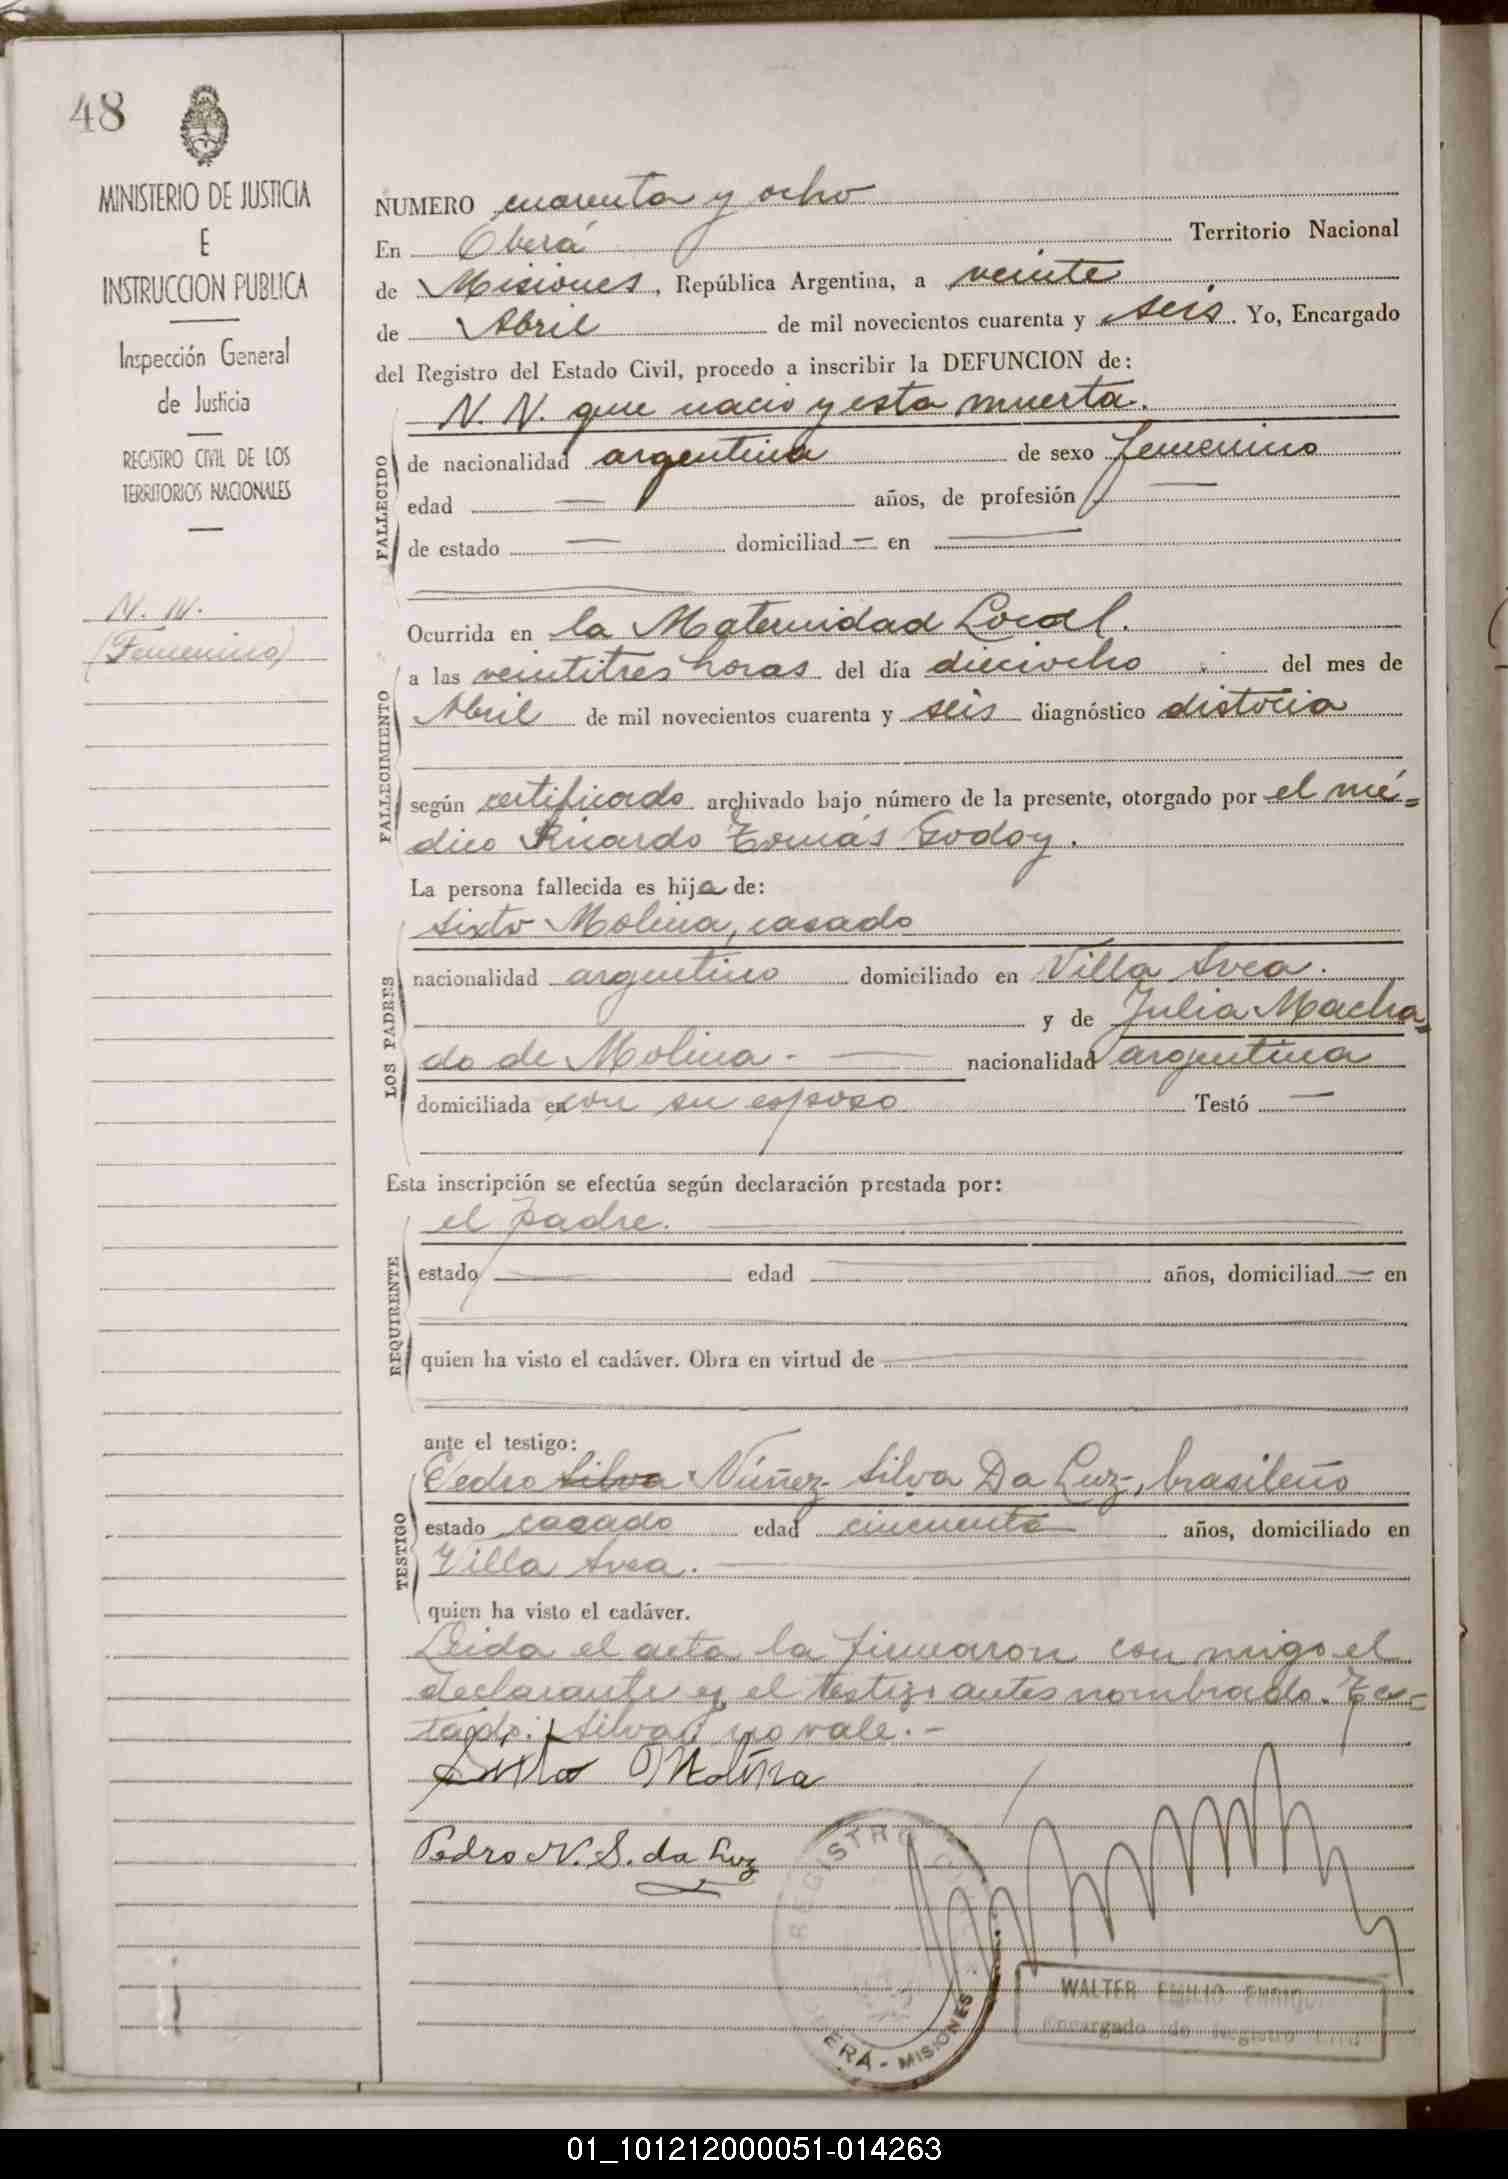 48
MINISTERIO DE JUSTICIA
E
INSTRUCCION PUBLICA
Inspección General
de Justicia
REGISTRO CIVIL DE LOS
TERRITORIOS NACIONALES
N. N.
(Femenino)
NUMERO cuarenta y ocho
En Oberá Territorio Nacional
de Misiones, República Argentina, a veinte
de Abril de mil novecientos cuarenta y seis. Yo, Encargado
del Registro del Estado Civil, procedo a inscribir la DEFUNCION de:
N. N. que nacio y esta muerta.
FALLECIDO
de nacionalidad argentina de sexo femenino
edad — años, de profesión —
de estado — domiciliad — en —
FALLECIMIENTO
Ocurrida en la Maternidad Local.
a las veintitres horas del día dieciocho del mes de
Abril de mil novecientos cuarenta y seis diagnóstico distocia
según certificado archivado bajo número de la presente, otorgado por el mé=
dico Ricardo Tomás Godoy.
La persona fallecida es hija de:
LOS PADRES
Sixto Molina, casado
nacionalidad argentino domiciliado en Villa Svea.
y de Julia Macha=
do de Molina. — nacionalidad argentina
domiciliada en con su esposo Testó —
Esta inscripción se efectúa según declaración prestada por:
REQUIRENTE
el padre. —
estado — edad — años, domiciliad — en
quien ha visto el cadáver. Obra en virtud de —
ante el testigo:
TESTIGO
Pedro Silva Núñez Silva Da Luz, brasileño
estado casado edad cincuenta años, domiciliado en
Villa Svea. —
quien ha visto el cadáver.
Leida el acta la firmaron con migo el
declarante y el testigo antes nombrado. Tes=
tado: Silva: no vale. -
Sixto Molina
Pedro N. S. da Luz
REGISTRO CIVIL
OBERÁ - MISIONES
WALTER EMILIO
Encargado de Registro Civil
01_101212000051-014263